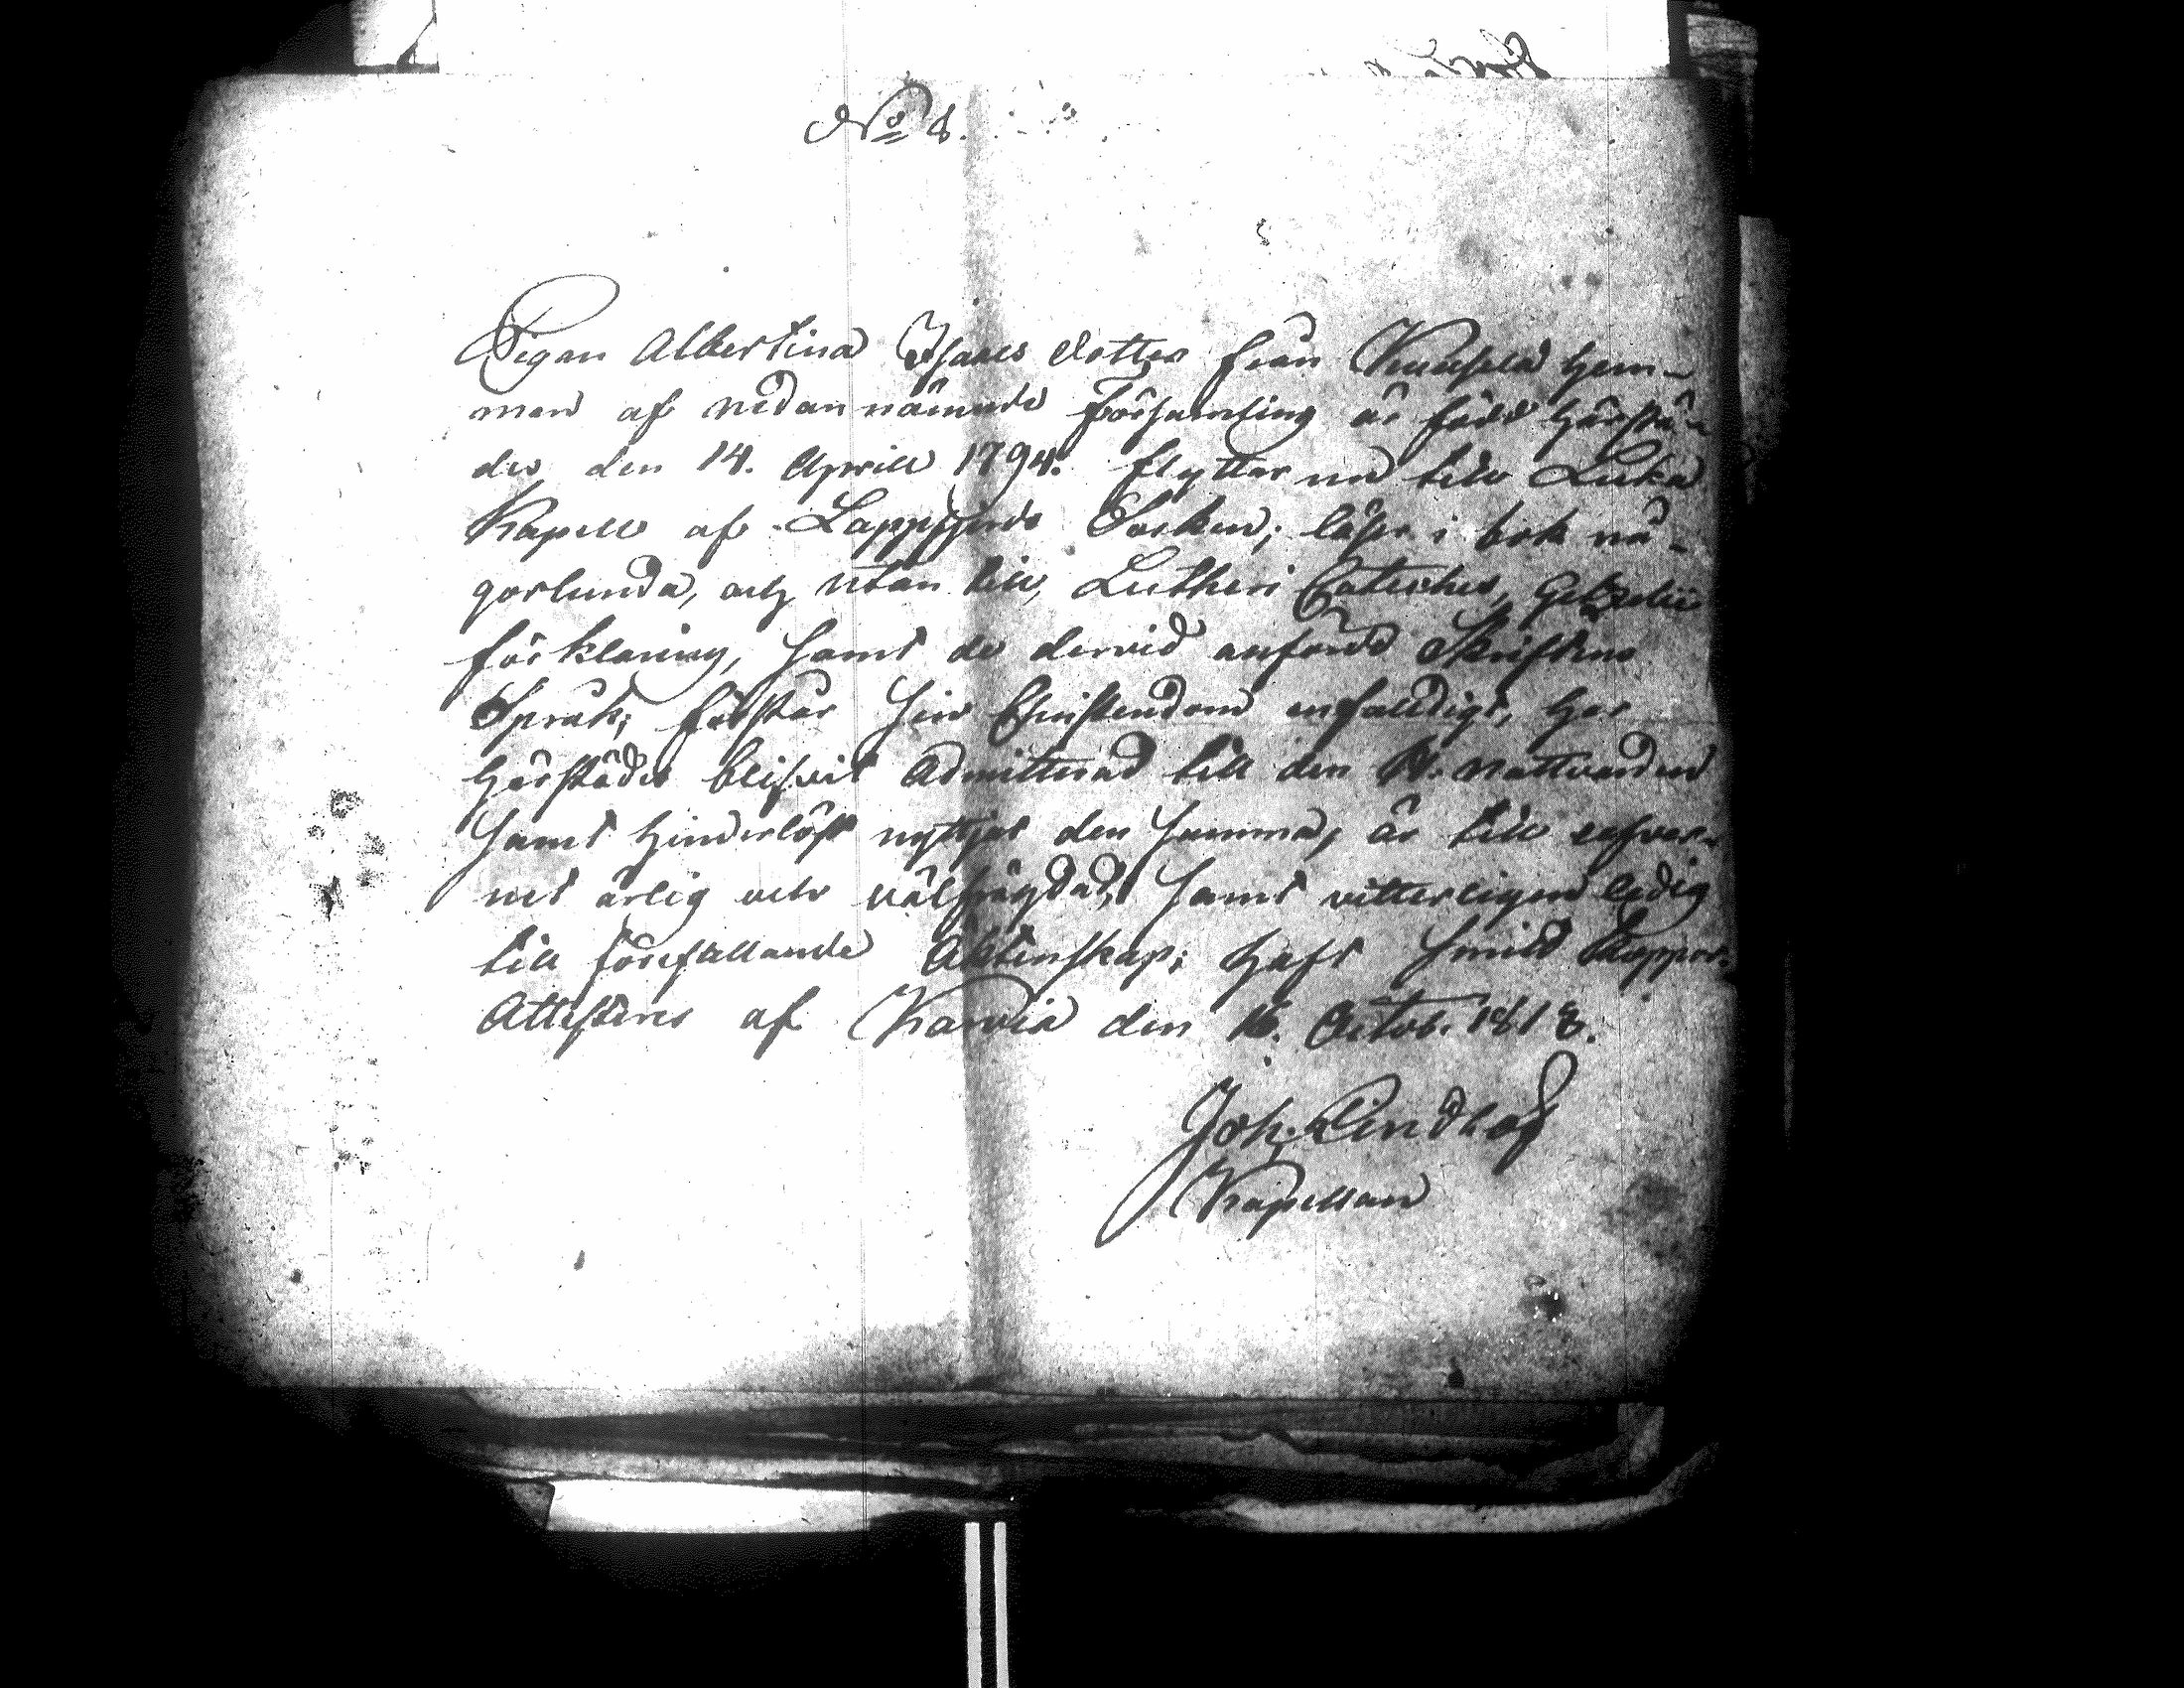 No 8.
Pigan Albertina Isaacs dotter från hem-
man af nedannämnde Församling är född härstä-
des den 14. Aprill 1794. flyttar nu till
Kapell af Lappfjerds Socken; läser i bok nå-
gorlunda, och utan till, Lutheri Cateches, Gezelii
förklaring, samt de dervid anförde Skriftens
Språk; förstår sin Christendom enfaldigt, har
härstädes blifvit Admitterad till den H. Nattvarden
samt hinderlöst nyttjat den samma, är till lefver-
net ärlig och välfrägdad, samt vitterligen ledig
till förefallande Äktenskap; haft Smitt koppor.
Attesteras af Karvia den 16. Octob. 1818.
Joh. Lindlöf
Kapellan